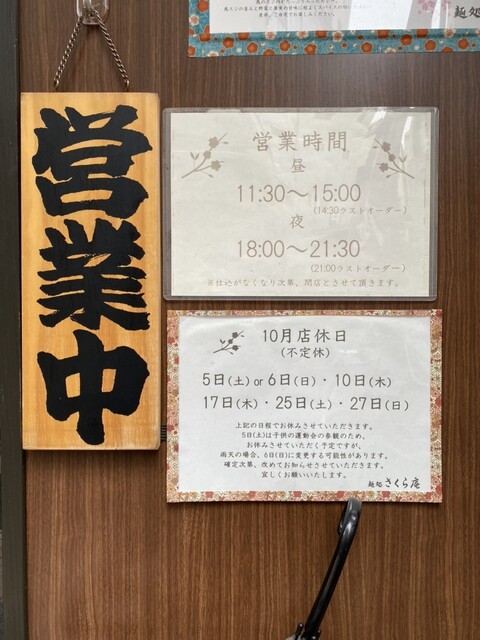 麺処
営業中
営業時間
昼
11:30〜15:00
(14:30ラストオーダー)
夜
18:00〜21:30
(21:00ラストオーダー)
※仕込がなくなり次第、閉店とさせて頂きます。
10月店休日
(不定休)
5日(土) or 6日(日)・10日(木)
17日(木)・25日(土)・27日(日)
上記の日程でお休みさせていただきます。
5日(土)は子供の運動会の参観のため、
お休みさせていただく予定ですが、
雨天の場合、6日(日)に変更する可能性があります。
確定次第、改めてお知らせさせていただきます。
宜しくお願いいたします。
麺処 さくら庵